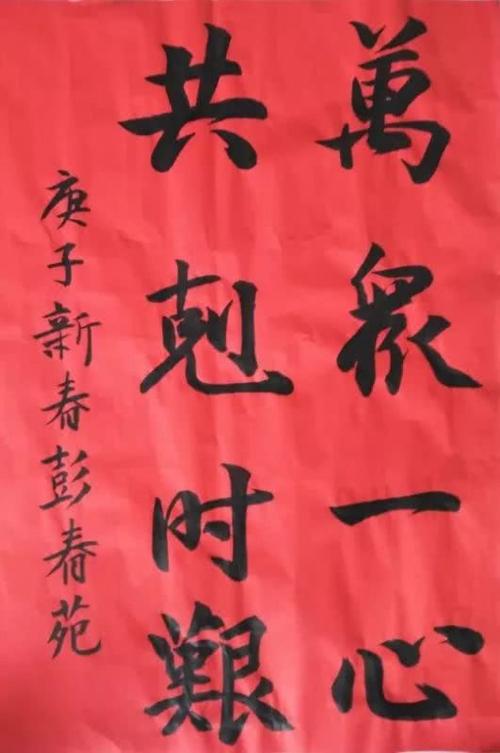 萬眾一心
共剋时艱
庚子新春彭春苑